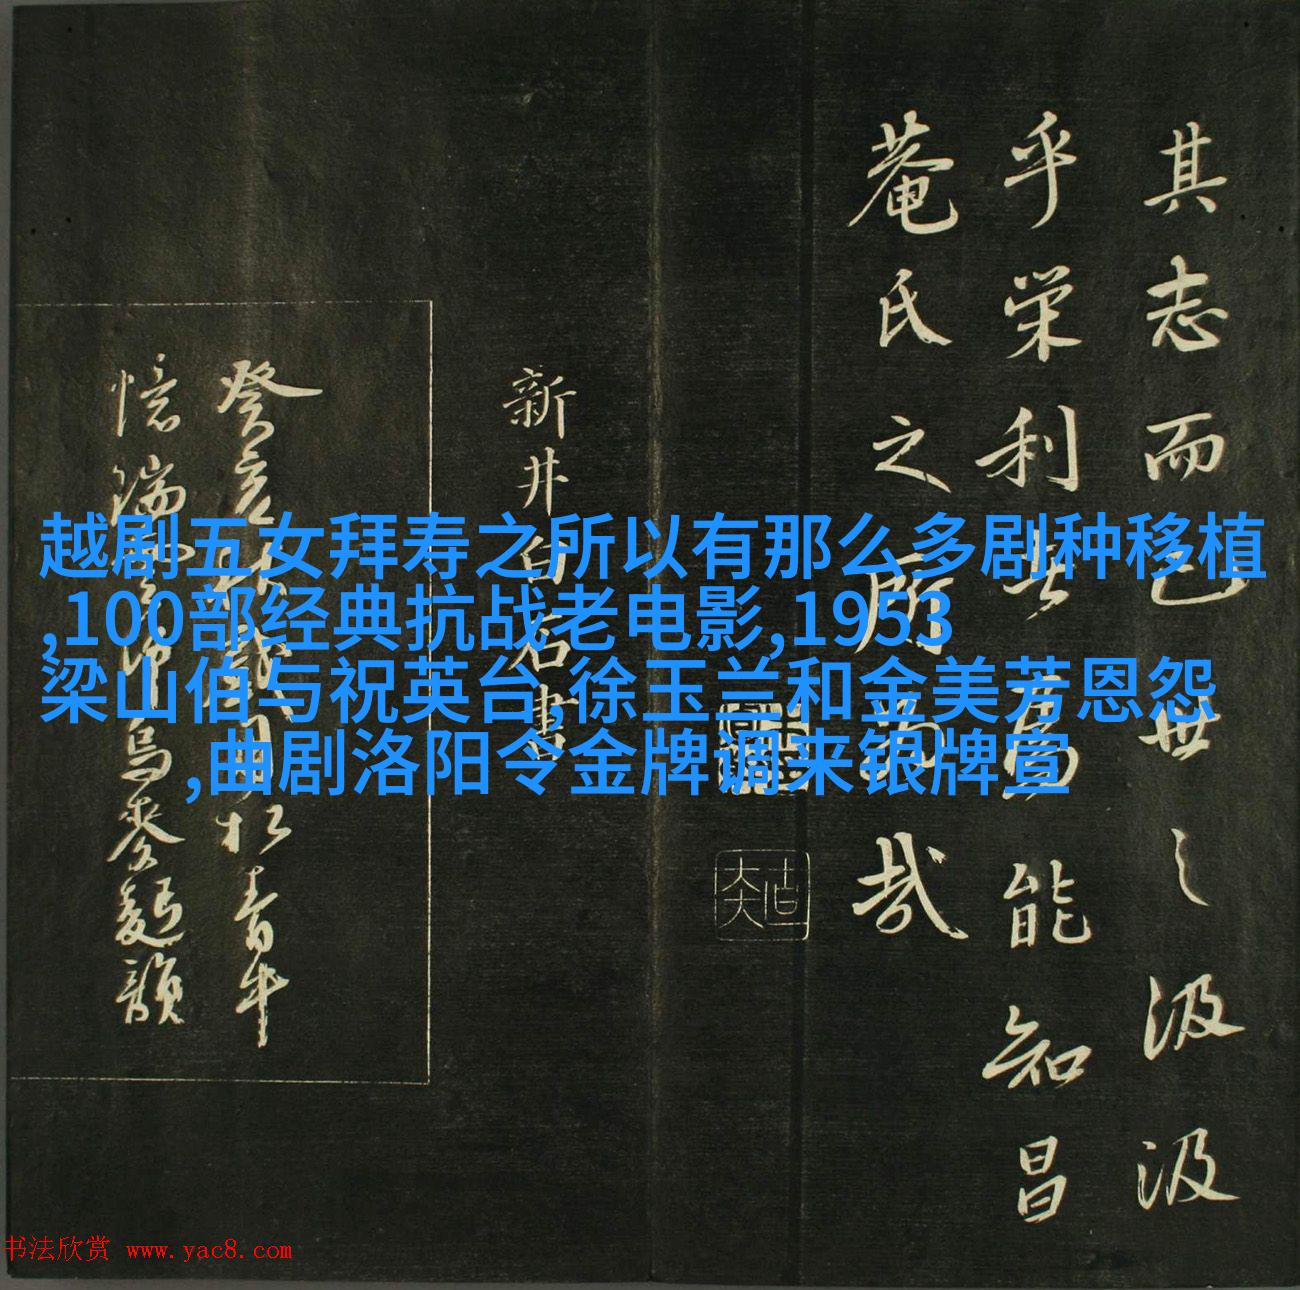 越剧五女拜寿之所以有那么多剧种移植
,100部经典抗战老电影,1953
梁山伯与祝英台,徐玉兰和金美芳恩怨
,曲剧洛阳令金牌调来银牌宣
其志而已世之汲汲
乎荣利者焉能知昌
菴氏之所为哉
新井白石書
癸亥
青牛
憶
印烏
韻
书法欣赏 www.yac8.com